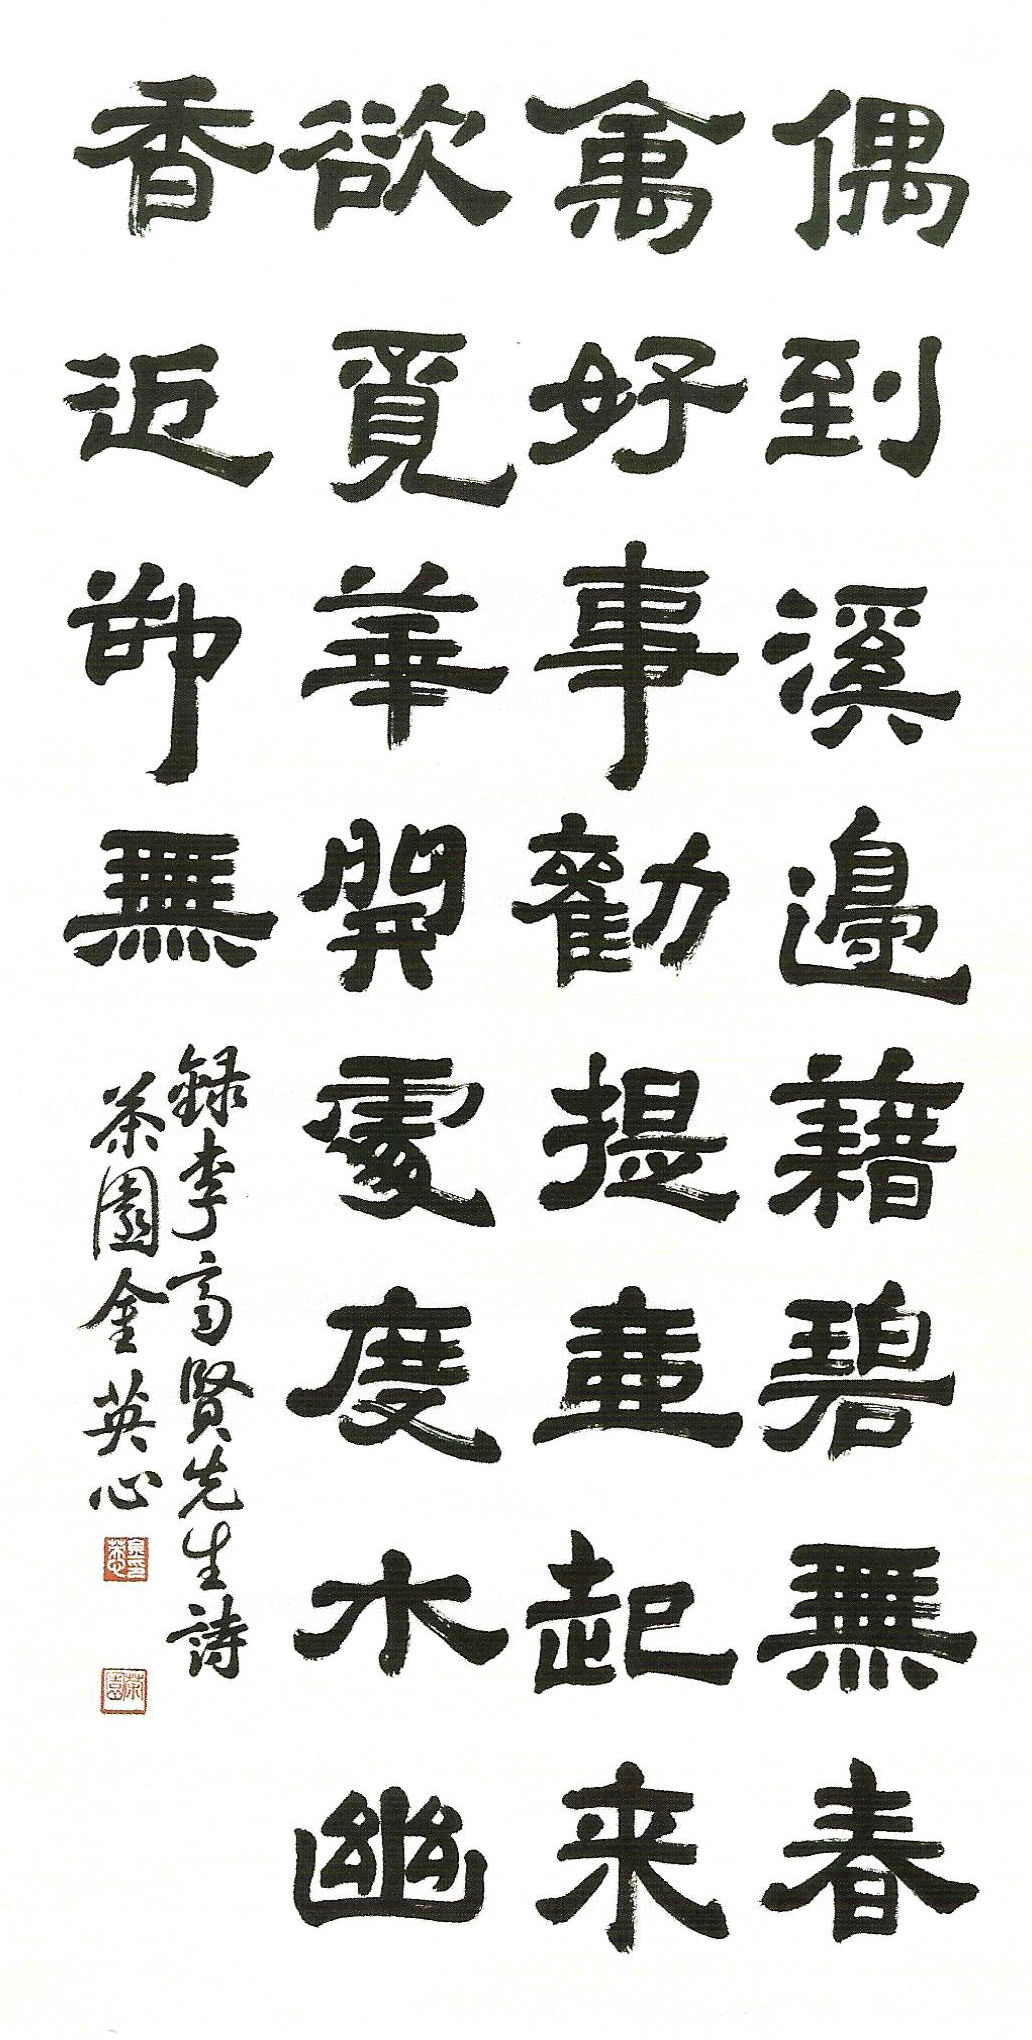 偶到溪邊藉碧無春
禽好事勸提壺起来
欲覓華開處度水幽
香近卻無
録李高賢先生詩
茶園金英心